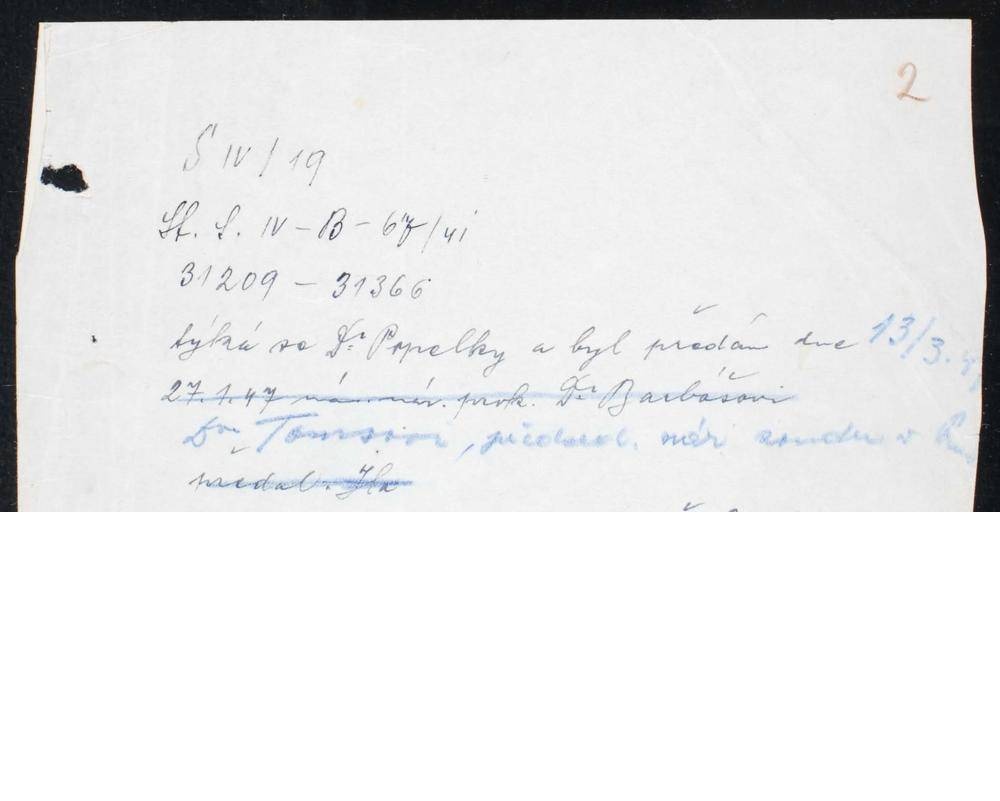 2
S IV/19
St. S. IV-B-67/41
31209 - 31366
týká se Dr Popelky a byl předán dne 13/3.
27.1.47 nár. prok. Dr Barbášovi
Dru, předsed. nár soudu v
předal.